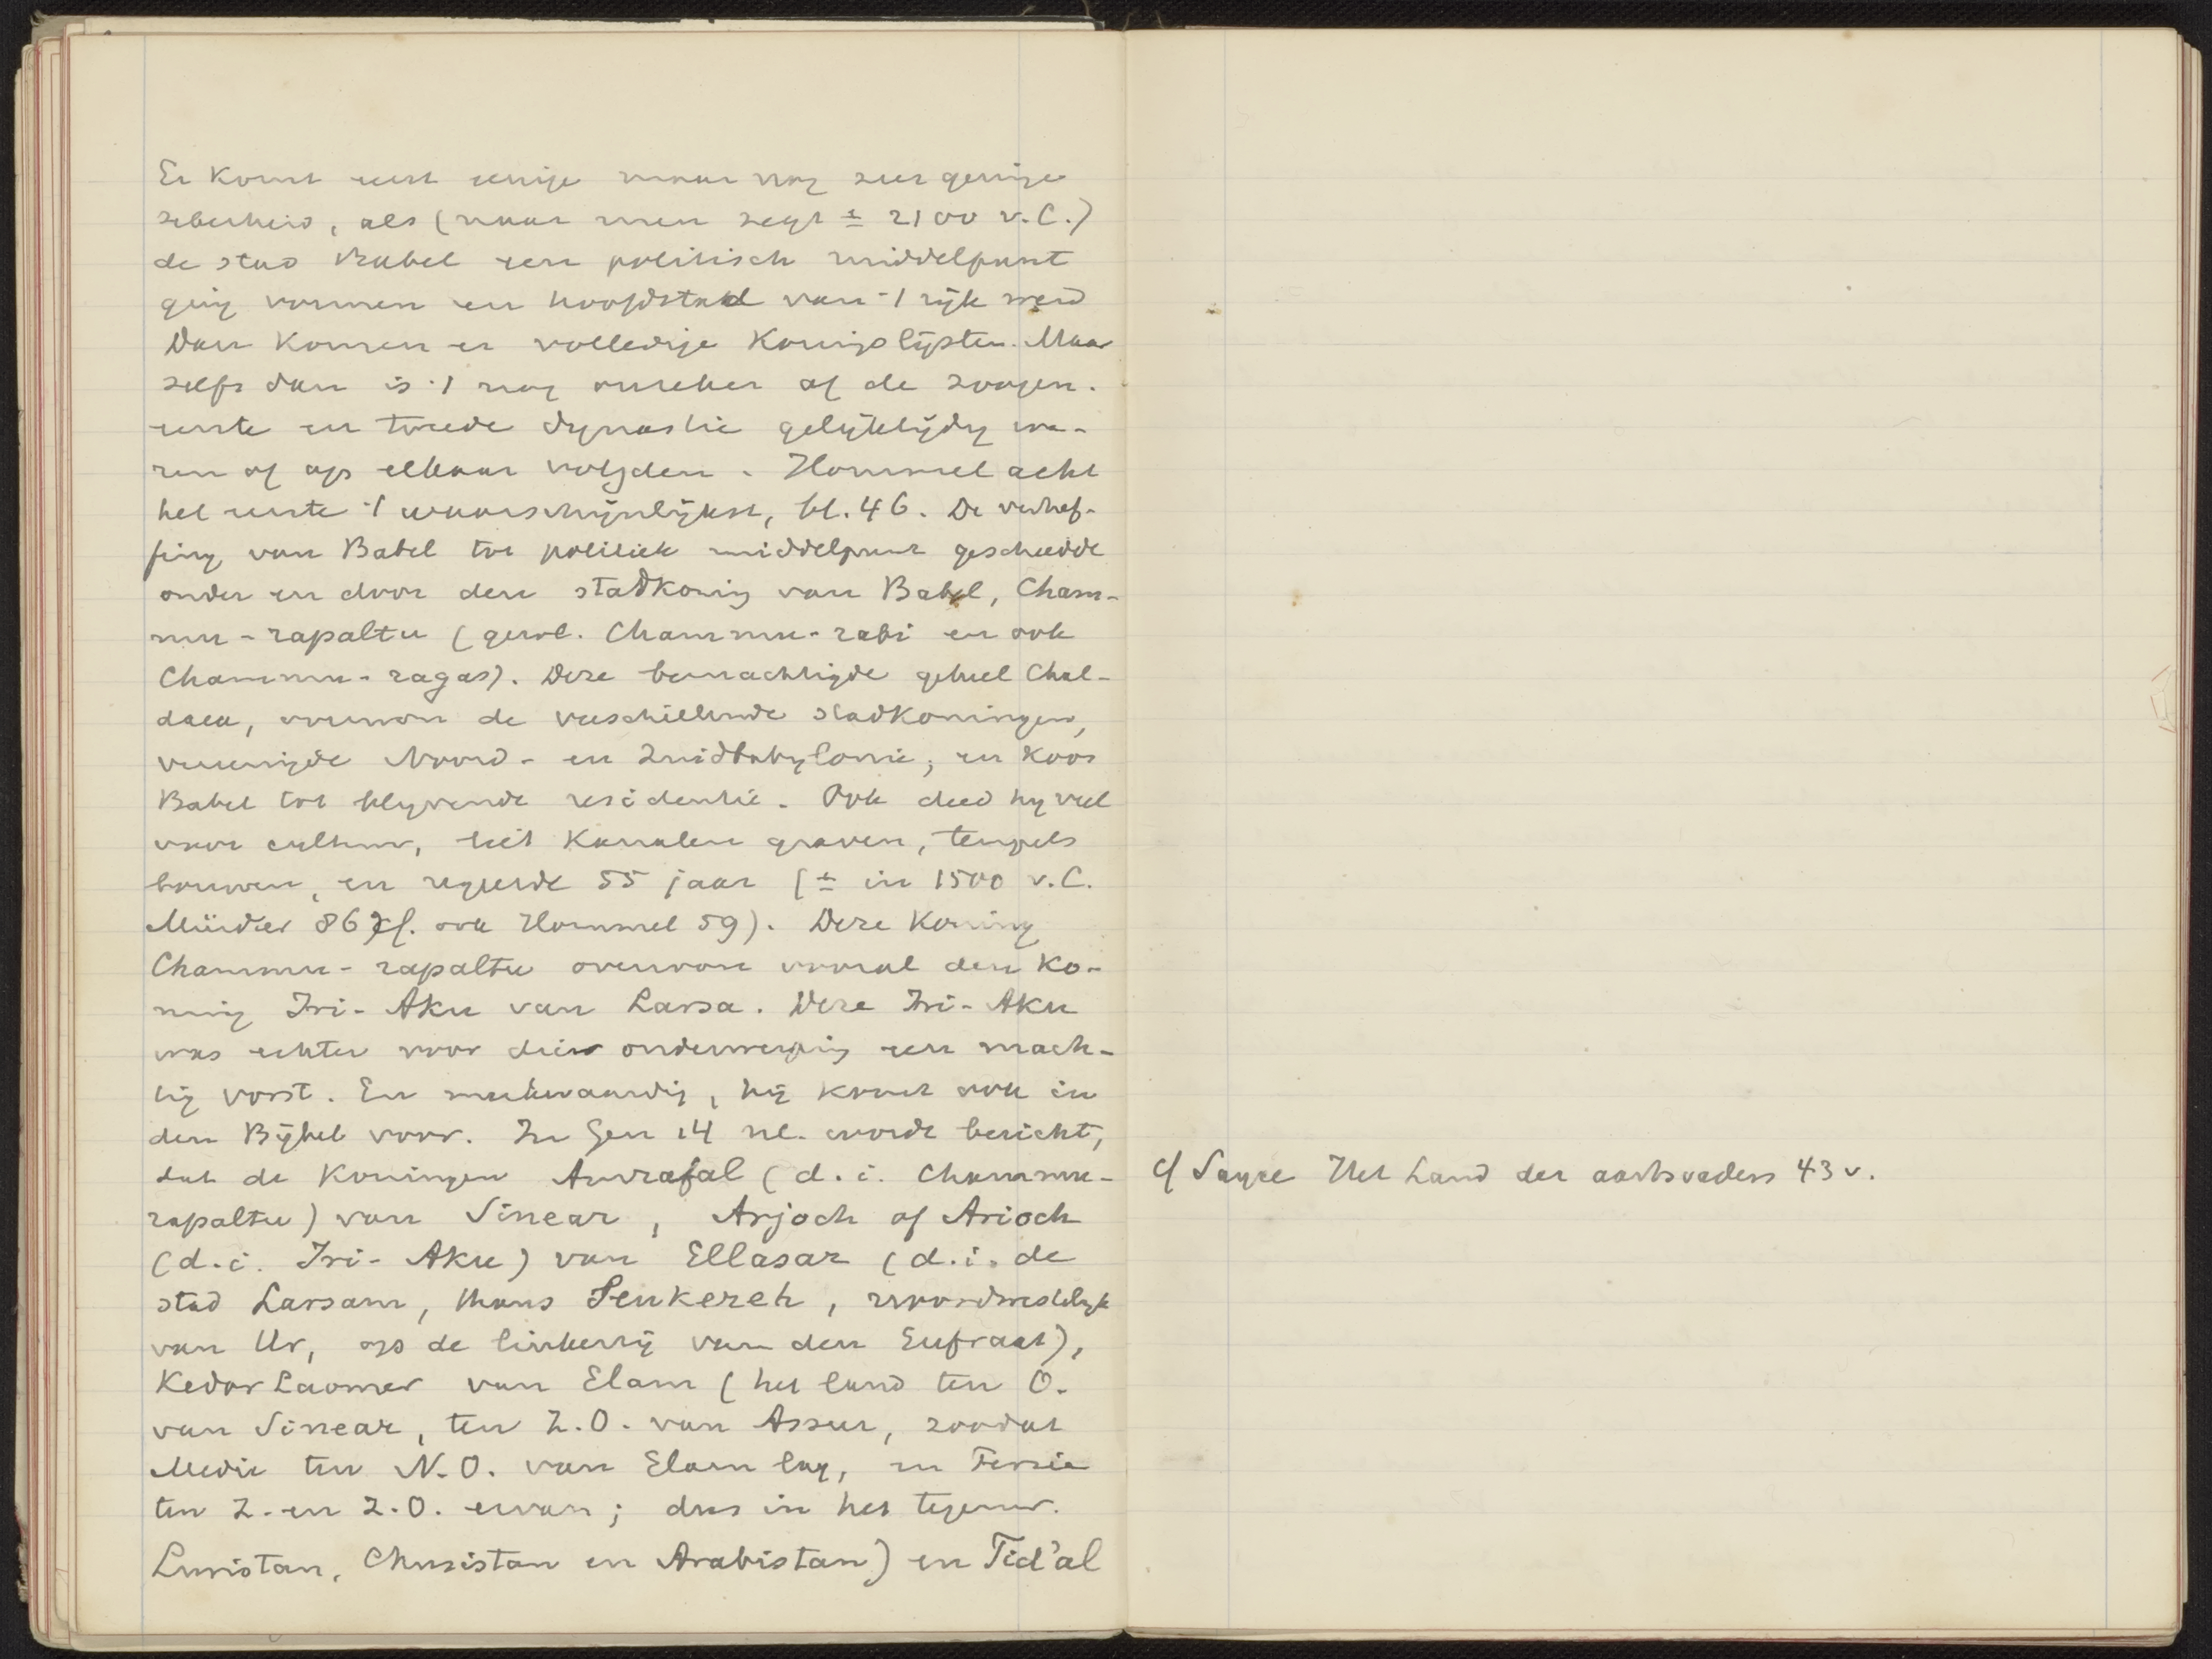 Er komt eerst eenige maar nog zeer geringe
zekerheid, als (naar men zegt ± 2100 v. C.)
de stad Babel een politisch middelpunt
ging vormen en hoofdstad van 't rijk werd
Dan komen er volledige Koningslijsten. Maar
zelfs dan is 't nog onzeker of de zoogen.
eerste en tweede dynastie gelijktijdig wa-
ren of op elkaar volgden. Hommel acht
het eerste 't waarschijnlijkst, bl. 46. De verhef-
fing van Babel tot politiek middelpunt geschiedde
onder en door den stadkoning van Babel, Cham-
mu-rapaltu (gewl. Chammu-rabi en ook
Chammu-ragas). Deze bemachtigde geheel Chal-
daea, overwon de verschillende stadkoningen,
vereenigde Noord- en Zuidbabylonie, en koos
Babel tot blyvende residentie. Ook deed hy veel
voor cultuur, liet Kanalen graven, tempels
bouwen, en regeerde 55 jaar (± in 1500 v. C.
Mürdter 86 cf. ook Hommel 59). Deze Koning
Chammu-rapaltu overwon vooral den Ko-
ning Iri-Aku van Larsa. Deze Iri-Aku
was echter voor dien onderwerping een mach-
tig vorst. En merkwaardig, hij komt ook in
den Bijbel voor. In Gen 14 nl. wordt bericht,
dat de Koningen Amrafal (d. i. Chammu-
rapaltu) van Sinear, Arjoch of Arioch
(d. i. Iri-Aku) van Ellasar (d. i. de
stad Larsam, thans Senkereh, noordwestelyk
van Ur, op de linkerzij van den Eufraat),
Kedor Laomer van Elam (het land ten O.
van Sinear, ten Z.O. van Assur, zoodat
Medie ten N.O. van Elam lag, en Persie
ten Z. en Z.O. ervan; dus in het tegenw.
Luristan, Chusistan en Arabistan) en Tid'al
cf Sayce Het Land der aartsvaders 43 v.